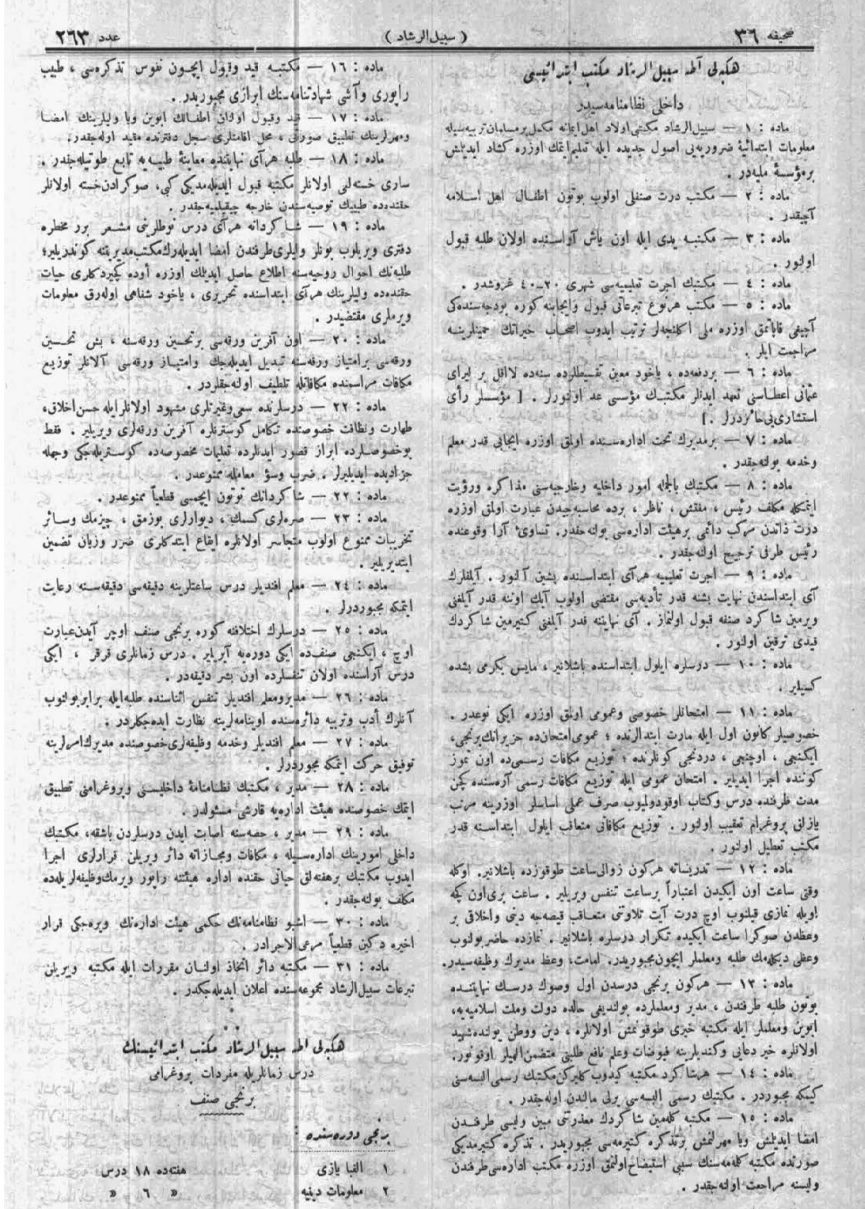 صحیفه ٣٦
( سبیل‌الرشاد )
عدد ٢٦٣
هكبه‌لی اطه سبیل‌الرشاد مكتب ابتدائیسی
داخلی نظامنامه‌سیدر
ماده : ١ — سبیل‌الرشاد مكتبی اولاد اهل ایمانه مكمل بر مسلمان تربیه‌سیله
معلومات ابتدائیهٔ ضروریه‌یی اصول جدیده ایله تعلیم ایتمك اوزره كشاد ایدیلمش
بر مؤسسهٔ ملیه‌در .
ماده : ٢ — مكتب درت صنفلی اولوب بوتون اطفال اهل اسلامه
آچیقدر .
ماده : ٣ — مكتبه یدی ایله اون یاش آراسنده اولان طلبه قبول
اولنور .
ماده : ٤ — مكتبك اجرت تعلیمیه‌سی شهری ٢٠-٤٠ غروشدر .
ماده : ٥ — مكتب هر نوع تبرعاتی قبول وایجابنه كوره بودجه‌سنده‌كی
آچیغی قاپاتمق اوزره ملی اكلنجه‌لر ترتیب ایدوب اصحاب خیراتك حمیتلرینه
مراجعت ایلر .
ماده : ٦ — بردفعه‌ده ، یاخود معین تقسیطلرده سنه‌ده لااقل بر لیرای
عثمانی اعطاسنی تعهد ایدنلر مكتبك مؤسسی عد اولنورلر . [ مؤسسلر رأی
استشاری‌یی حائزدرلر . ]
ماده : ٧ — بر مدیرك تحت اداره‌سنده اولمق اوزره ایجابی قدر معلم
وخدمه بولنه‌جقدر .
ماده : ٨ — مكتبك بالجمله امور داخلیه وخارجیه‌سنی مذاكره ورؤیت
ایتمكله مكلف رئیس ، مفتش ، ناظر ، برده محاسبه‌جیدن عبارت اولمق اوزره
درت ذاتدن مركب دائمی بر هیئت اداره‌سی بولنه‌جقدر. تساویٔ آرا وقوعنده
رئیس طرفی ترجیح اولنه‌جقدر .
ماده : ٩ — اجرت تعلیمیه هر آی ابتداسنده پشین آلنور . آیلقلرك
آی ابتداسندن نهایت بشنه قدر تأدیه‌سی مقتضی اولوب آیك اوننه قدر آیلغنی
ویرمین شاكرد صنفه قبول اولنماز . آی نهایتنه قدر آیلغنی كتیرمین شاكردك
قیدی ترقین اولنور .
ماده : ١٠ — درسلره ایلول ابتداسنده باشلانیر ، مایس یكرمی بشده
كسیلیر .
ماده : ١١ — امتحانلر خصوصی وعمومی اولمق اوزره ایكی نوعدر .
خصوصیلر كانون اول ایله مارت ابتدالرنده ؛ عمومی امتحان‌ده حزیرانك برنجی،
ایكنجی ، اوچنجی ، دردنجی كونلرنده ؛ توزیع مكافات رسمی‌ده اون تموز
كوننده اجرا ایدیلیر . امتحان عمومی ایله توزیع مكافات رسمی آره‌سنده كچن
مدت ظرفنده درس وكتاب اوقودولمیوب صرف عملی اساسلر اوزرینه مرتب
یازلق پروغرام تعقیب اولنور . توزیع مكافاتی متعاقب ایلول ابتداسنه قدر
مكتب تعطیل اولنور .
ماده : ١٢ — تدریساته هركون زوالی ساعت طقوزده باشلانیر. اوكله
وقتی ساعت اون ایكیدن اعتباراً بر ساعت تنفس ویریلیر . ساعت بری اون كچه
اویله نمازی قیلنوب اوچ درت آیت تلاوتنی متعاقب قیصه‌جه دینی واخلاقی بر
وعظدن صوكرا ساعت ایكیده تكرار درسلره باشلانیر . نمازده حاضر بولنوب
وعظی دیكله‌مك طلبه ومعلملر ایچون مجبوریدر. امامت، وعظ مدیرك وظیفه‌سیدر.
ماده : ١٣ — هركون برنجی درسدن اول وصوك درسك نهایتنده
بوتون طلبه طرفندن ، مدیر ومعلملرده بولندیغی حالده دولت وملت اسلامیه‌یه،
ابوین ومعلملر ایله مكتبه خیری طوقونمش اولانلره ، دین ووطن یولنده شهید
اولانلره خیر دعایی وكندیلرینه فیوضات وعلم نافع طلبنی متضمن الهیلر اوقونور.
ماده : ١٤ — هر شاكرد مكتبه كیدوب كلیركن مكتبك رسمی البسه‌سنی
كیمكه مجبوردر . مكتبك رسمی البسه‌سی یرلی مالدن اوله‌جقدر .
ماده : ١٥ — مكتبه كله‌مین شاكردك معذرتنی مبین ولیسی طرفندن
امضا ایدیلمش ویا مهرلنمش بر تذكره كتیرمه‌سی مجبوریدر. تذكره كتیرمدیكی
صورتده مكتبه كلمه‌مسنك سببی استیضاح اولنمق اوزره مكتب اداره‌سی طرفندن
ولیسنه مراجعت اولنه‌جقدر .
ماده : ١٦ — مكتبه قید وقبول ایچون نفوس تذكره‌سی ، طبیب
راپوری وآشی شهادتنامه‌سنك ابرازی مجبوریدر .
ماده : ١٧ — قید وقبول اولنان اطفالك ابوین ویا ولیلرینك امضا
ومهرلرینك تطبیق صورتی ، محل اقامتلری سجل دفترنده مقید اوله‌جقدر.
ماده : ١٨ — طلبه هر آی نهایتنده معاینهٔ طبیه‌یه تابع طوتیله‌جقدر .
ساری خسته‌لغی اولانلر مكتبه قبول ایدیله‌مدیكی كبی، صوكرادن خسته اولانلر
حقنده‌ده طبیبك توصیه‌سندن خارجه چیقیلمیه‌جقدر .
ماده : ١٩ — شاكردانه هر آی درس نوطلرینی مشعر برر مخطره
دفتری ویریلوب بونلر ولیلری طرفندن امضا ایدیله‌رك مكتب مدیریتنه كوندریلیر؛
طلبه‌نك احوال روحیه‌سنه اطلاع حاصل ایدیلمك اوزره اوده كچیردكلری حیات
حقنده‌ده ولیلرینك هر آی ابتداسنده تحریری ، یاخود شفاهی اوله‌رق معلومات
ویرملری مقتضیدر .
ماده : ٢٠ — اون آفرین ورقه‌سی بر تحسین ورقه‌سنه ، بش تحسین
ورقه‌سی بر امتیاز ورقه‌سنه تبدیل ایدیله‌جك وامتیاز ورقه‌سی آلانلر توزیع
مكافات مراسمنده مكافاتله تلطیف اولنه‌جقلردر .
ماده : ٢٢ — درسلرنده سعی وغیرتلری مشهود اولانلر ایله حسن اخلاق،
طهارت ونظافت خصوصنده تكامل كوسترنلره آفرین ورقه‌لری ویریلیر . فقط
بوخصوصلرده ابراز قصور ایدنلرده تعلیمات مخصوصه‌ده كوستریله‌جكی وجهله
جزادیده ایدیلیرلر . ضرب وسؤ معامله ممنوعدر .
ماده : ٢٢ — شاكردانك توتون ایچمسی قطعیاً ممنوعدر .
ماده : ٢٣ — صره‌لری كسمك ، دیوارلری بوزمق ، چیزمك وسائر
تخریبات ممنوع اولوب متجاسر اولانلره ایقاع ایتدكلری ضرر وزیان تضمین
ایتدیریلیر .
ماده : ٢٤ — معلم افندیلر درس ساعتلرینه دقیقه‌سی دقیقه‌سنه رعایت
ایتمكه مجبوردرلر .
ماده : ٢٥ — درسلرك اختلافنه كوره برنجی صنف اوچر آیدن عبارت
اوچ ، ایكنجی صنفده ایكی دوره‌یه آیریلیر . درس زمانلری قرقر ، ایكی
درس آراسنده اولان تنفسلرده اون بشر دقیقه‌در .
ماده : ٢٦ — مدیر ومعلم افندیلر تنفس اثناسنده طلبه ایله برابر بولنوب
آنلرك أدب وتربیه دائره‌سنده اوینامه‌لرینه نظارت ایده‌جكلردر .
ماده : ٢٧ — معلم افندیلر وخدمه وظیفه‌لری خصوصنده مدیرك امرلرینه
توفیق حركت ایتمكه مجبوردرلر .
ماده : ٢٨ — مدیر ، مكتبك نظامنامهٔ داخلیسنی وپروغرامنی تطبیق
ایتمك خصوصنده هیئت اداره‌یه قارشی مسئولدر .
ماده : ٢٩ — مدیر ، حصه‌سنه اصابت ایدن درسلردن باشقه، مكتبك
داخلی امورینك اداره‌سیله ، مكافات ومجازاته دائر ویریلن قرارلری اجرا
ایدوب مكتبك بر هفته‌لق حیاتی حقنده اداره هیئتنه راپور ویرمك وظیفه‌لریله‌ده
مكلف بولنه‌جقدر .
ماده : ٣٠ — اشبو نظامنامه‌نك حكمی هیئت اداره‌نك ویره‌جكی قرار
اخیره دكین قطعیاً مرعی‌الاجرادر .
ماده : ٣١ — مكتبه دائر اتخاذ اولنان مقررات ایله مكتبه ویریلن
تبرعات سبیل‌الرشاد مجموعه‌سنده اعلان ایدیله‌جكدر .
هكبه‌لی اطه سبیل‌الرشاد مكتب ابتدائیسنك
درس زمانلریله مفردات پروغرامی
برنجی صنف
برنجی دوره‌سنده :
١ الفبا یازی هفته‌ده ١٨ درس
٢ معلومات دینیه » ٦ »